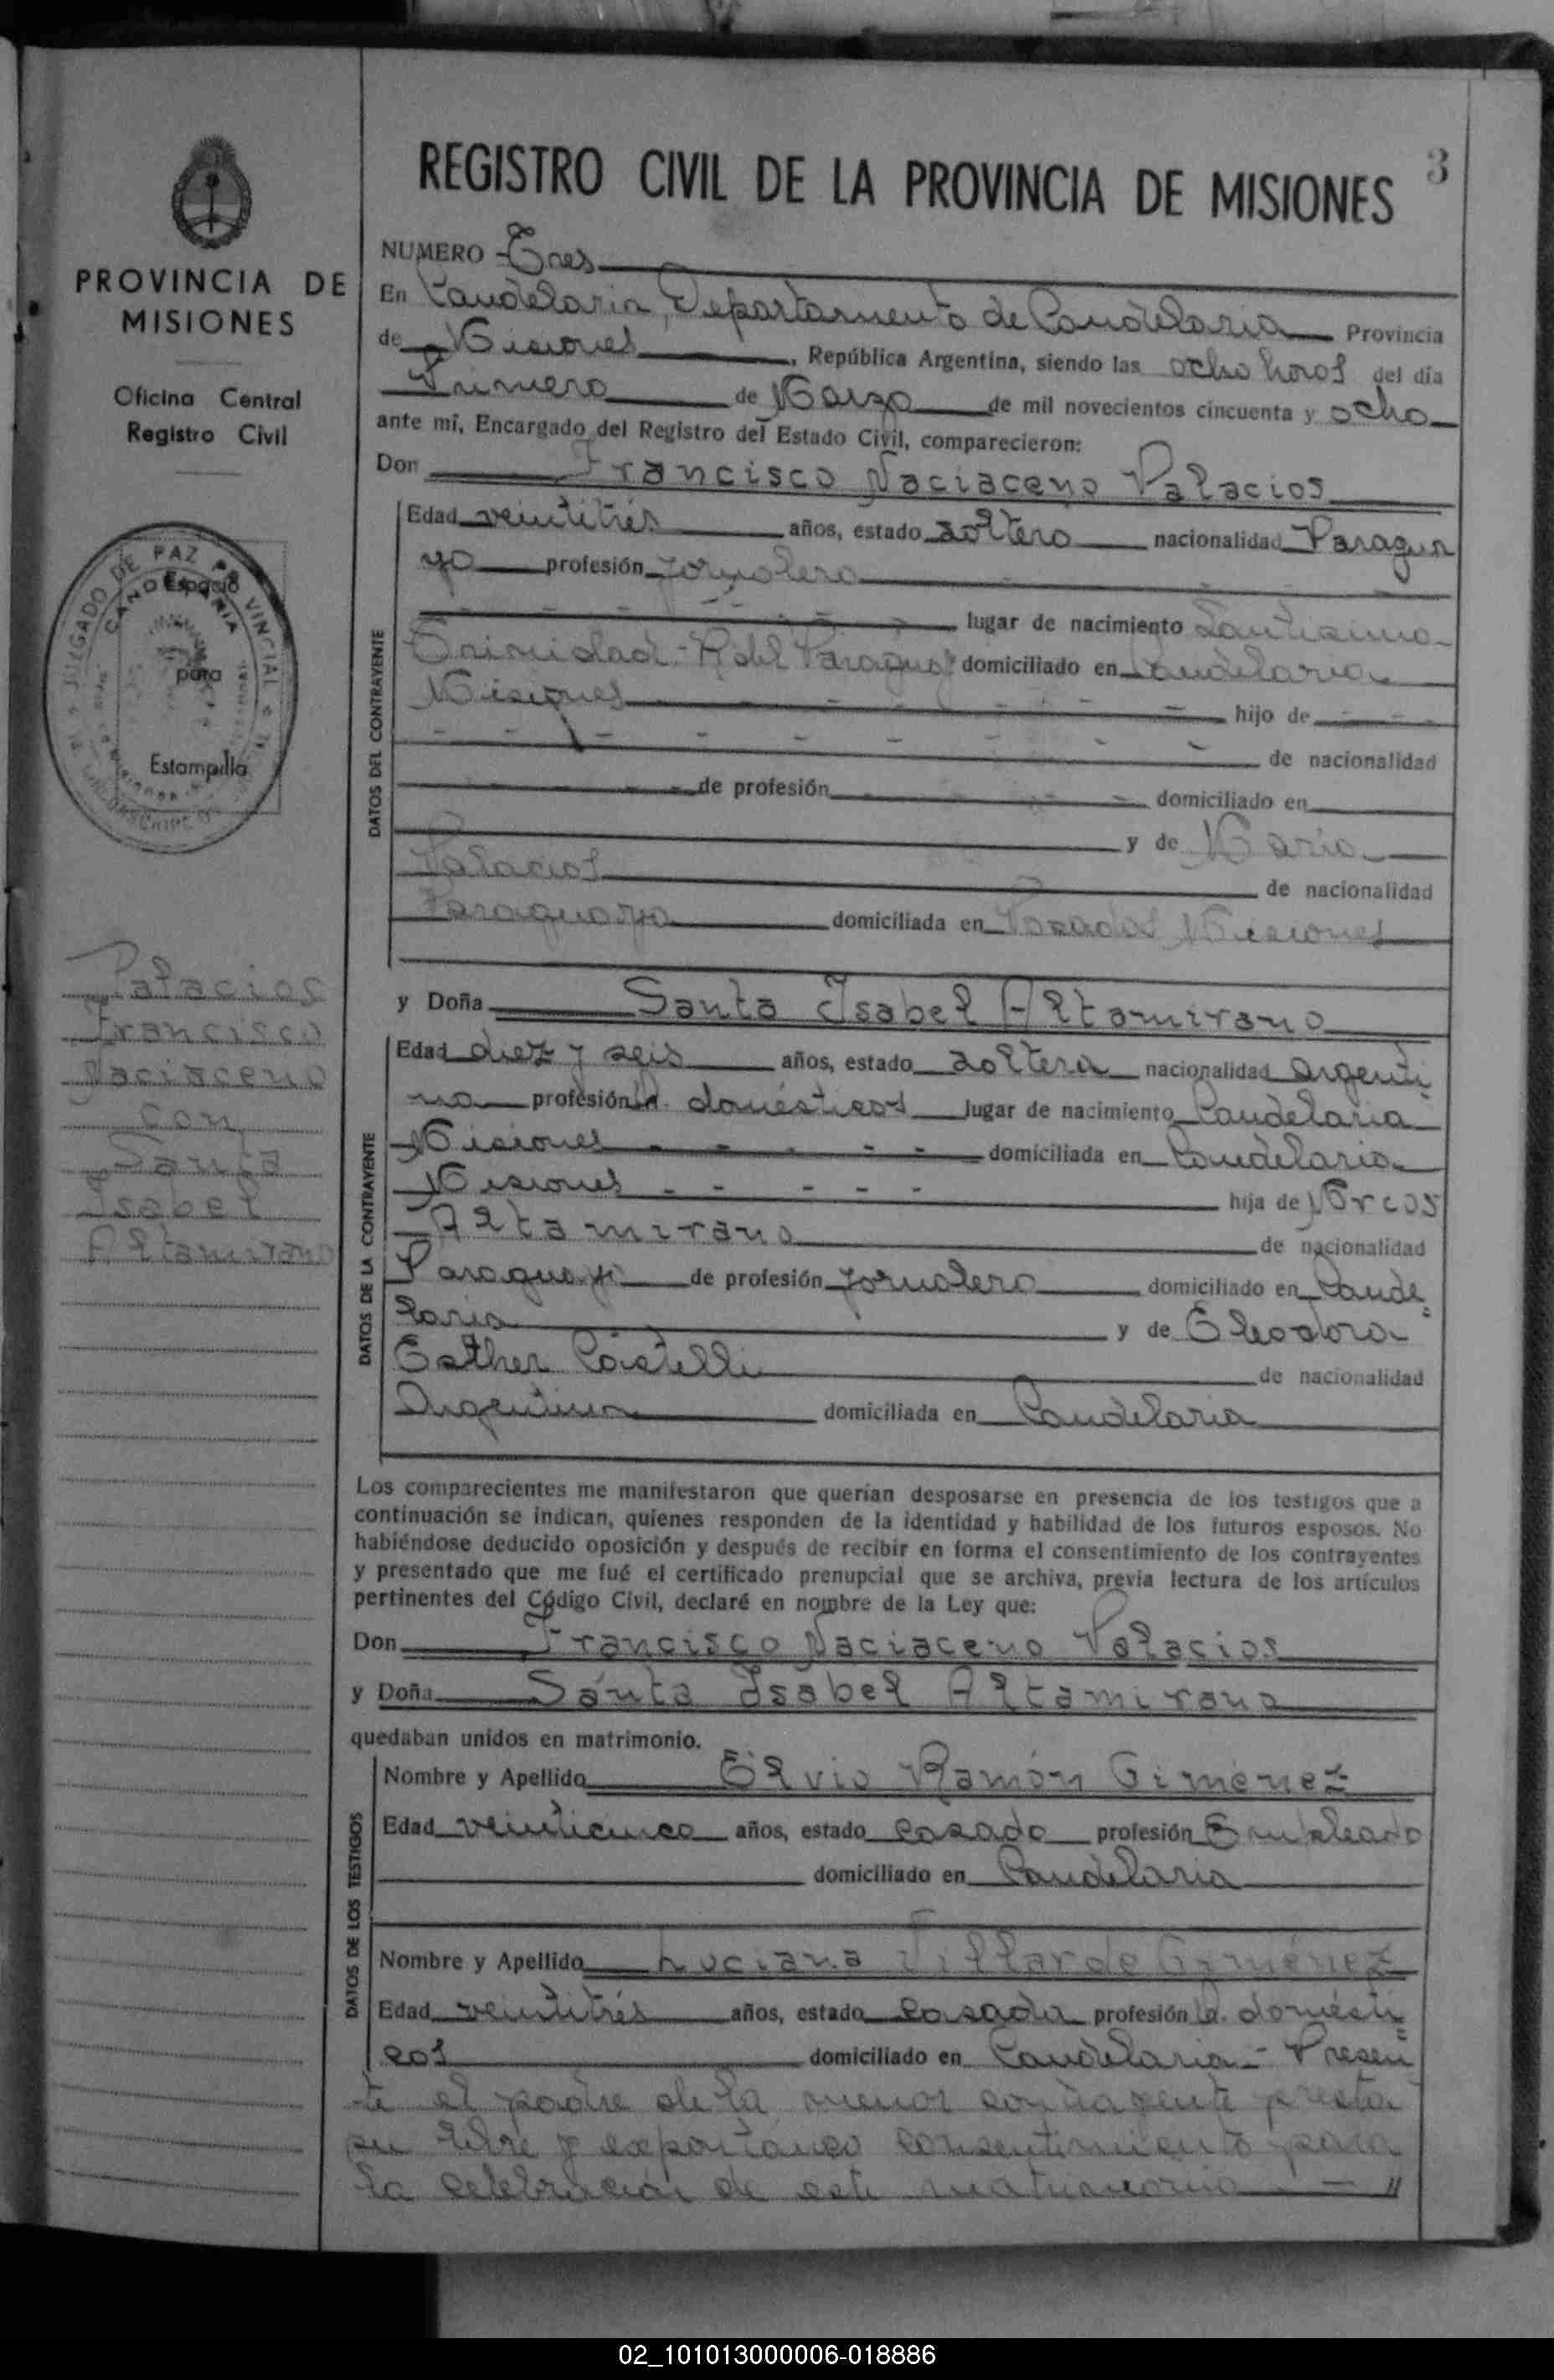 REGISTRO CIVIL DE LA PROVINCIA DE MISIONES 3
PROVINCIA DE
MISIONES
Oficina Central
Registro Civil
JUZGADO DE PAZ
Espacio
para
Estampilla
Palacios
Francisco
Naciaceno
con
Santa
Isabel
Altamirano
NUMERO Tres
En Candelaria, Departamento de Candelaria Provincia
de Misiones, República Argentina, siendo las ocho horas del día
Primero de Marzo de mil novecientos cincuenta y ocho
ante mí, Encargado del Registro del Estado Civil, comparecieron:
Don Francisco Naciaceno Palacios
DATOS DEL CONTRAYENTE
Edad veintitrés años, estado soltero nacionalidad Paragua
yo profesión Jornalero
lugar de nacimiento Santísima
Trinidad - R. del Paraguay domiciliado en Candelaria
Misiones hijo de
de nacionalidad
de profesión domiciliado en
y de María
Palacios de nacionalidad
Paraguaya domiciliada en Posadas Misiones
y Doña Santa Isabel Altamirano
DATOS DE LA CONTRAYENTE
Edad diez y seis años, estado soltera nacionalidad argenti-
na profesión q. domésticos lugar de nacimiento Candelaria
Misiones domiciliada en Candelaria
Misiones hija de Marcos
Altamirano de nacionalidad
Paraguayo de profesión Jornalero domiciliado en Cande=
laria y de Eleodora
Esther Castelli de nacionalidad
Argentina domiciliada en Candelaria
Los comparecientes me manifestaron que querían desposarse en presencia de los testigos que a
continuación se indican, quienes responden de la identidad y habilidad de los futuros esposos. No
habiéndose deducido oposición y después de recibir en forma el consentimiento de los contrayentes
y presentado que me fué el certificado prenupcial que se archiva, previa lectura de los artículos
pertinentes del Código Civil, declaré en nombre de la Ley que:
Don Francisco Naciaceno Palacios
y Doña Santa Isabel Altamirano
quedaban unidos en matrimonio.
DATOS DE LOS TESTIGOS
Nombre y Apellido Elvio Ramón Gimenez
Edad veinticinco años, estado casado profesión Empleado
domiciliado en Candelaria
Nombre y Apellido Luciana Villar de Giménez
Edad veintitrés años, estado casada profesión q. domésti=
cos domiciliado en Candelaria - Presen
te el padre de la menor contrayente presta
su libre y expontáneo consentimiento para
la celebración de este matrimonio. - //
02_101013000006-018886